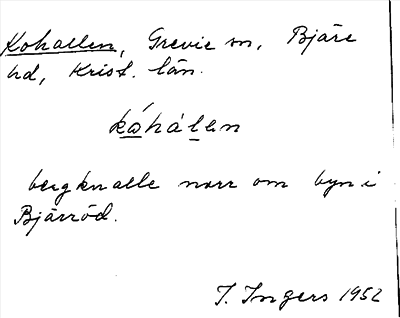 Kohallen, Grevie sn, Bjäre
hd, Krist. län.
kǻhálen
bergknalle norr om byn i
Bjärröd.
I. Ingers 1952